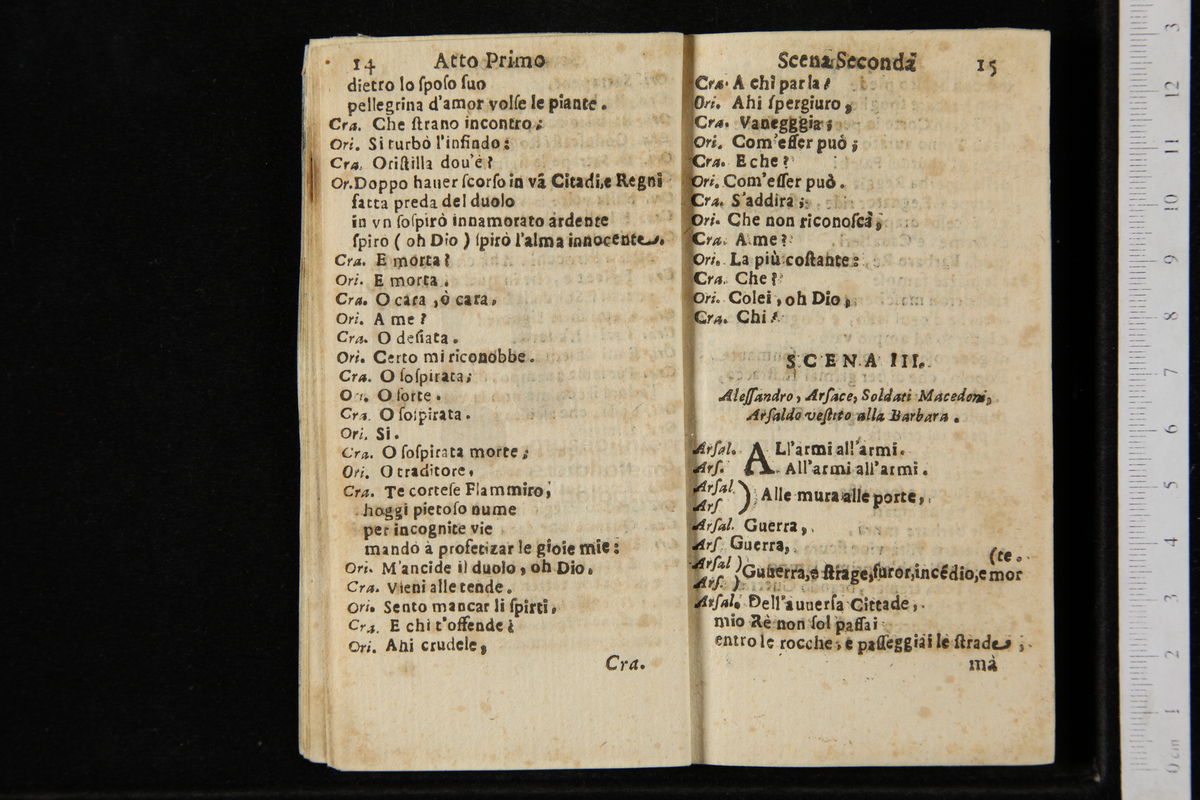 14 Atto Primo
dietro lo ſpoſo ſuo
pellegrina d'amor volſe le piante.
Cra. Che ſtrano incontro;
Ori. Si turbò l'infindo:
Cra. Oriſtilla dou'è?
Or. Doppo hauer ſcorſo in vā Citadi, e Regni
fatta preda del duolo
in vn ſoſpirò innamorato ardente
ſpiro ( oh Dio ) ſpirò l'alma innocente.
Cra. E morta?
Ori. E morta.
Cra. O cara, ò cara,
Ori. A me?
Cra. O deſiata.
Ori. Certo mi riconobbe.
Cra. O ſoſpirata;
Ori. O ſorte.
Cra. O ſoſpirata.
Ori. Si.
Cra. O ſoſpirata morte;
Ori. O traditore,
Cra. Te corteſe Flammiro,
hoggi pietoſo nume
per incognite vie
mandò à profetizar le gioie mie:
Ori. M'ancide il duolo, oh Dio.
Cra. Vieni alle tende.
Ori. Sento mancar li ſpirti,
Cra. E chi t'offende?
Ori. Ahi crudele,
Cra.
Scena Seconda 15
Cra. A chi parla?
Ori. Ahi ſpergiuro,
Cra. Vanegggia;
Ori. Com'eſſer può;
Cra. E che?
Ori. Com'eſſer può.
Cra. S'addira;
Ori. Che non riconoſca,
Cra. A me?
Ori. La più coſtante:
Cra. Che?
Ori. Colei, oh Dio,
Cra. Chi?
SCENA III.
Aleſſandro, Arſace, Soldati Macedoni,
Arſaldo veſtito alla Barbara.
Arſal. ALl'armi all'armi.
Arſ. All'armi all'armi.
Arſal. Arſ ) Alle mura alle porte,
Arſal. Guerra,
Arſ Guerra,
(te.
Arſal ) Arſ. ) Guuerra, e ſtrage, furor, incédio, e mor
Arſal. Dell'auuerſa Cittade,
mio Rè non ſol paſſai
entro le rocche, e paſſeggiai le ſtrade;
mà